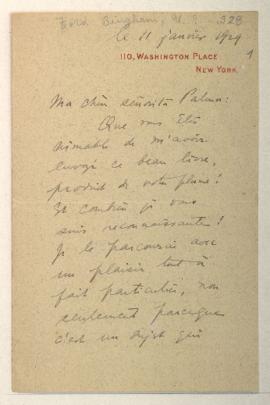 Ford Bingham, W. 328
le 11 janvier 1929
110, WASHINGTON PLACE
NEW YORK
Ma chère señorita Palma:
Que vous êtes
aimable de m'avoir
envoyé ce beau livre,
produit de votre plume!
Et combien je vous
suis reconnaissante!
Je le parcourai avec
un plaisir tout à
fait particulier, non
seulement parceque
c'est un sujet qui